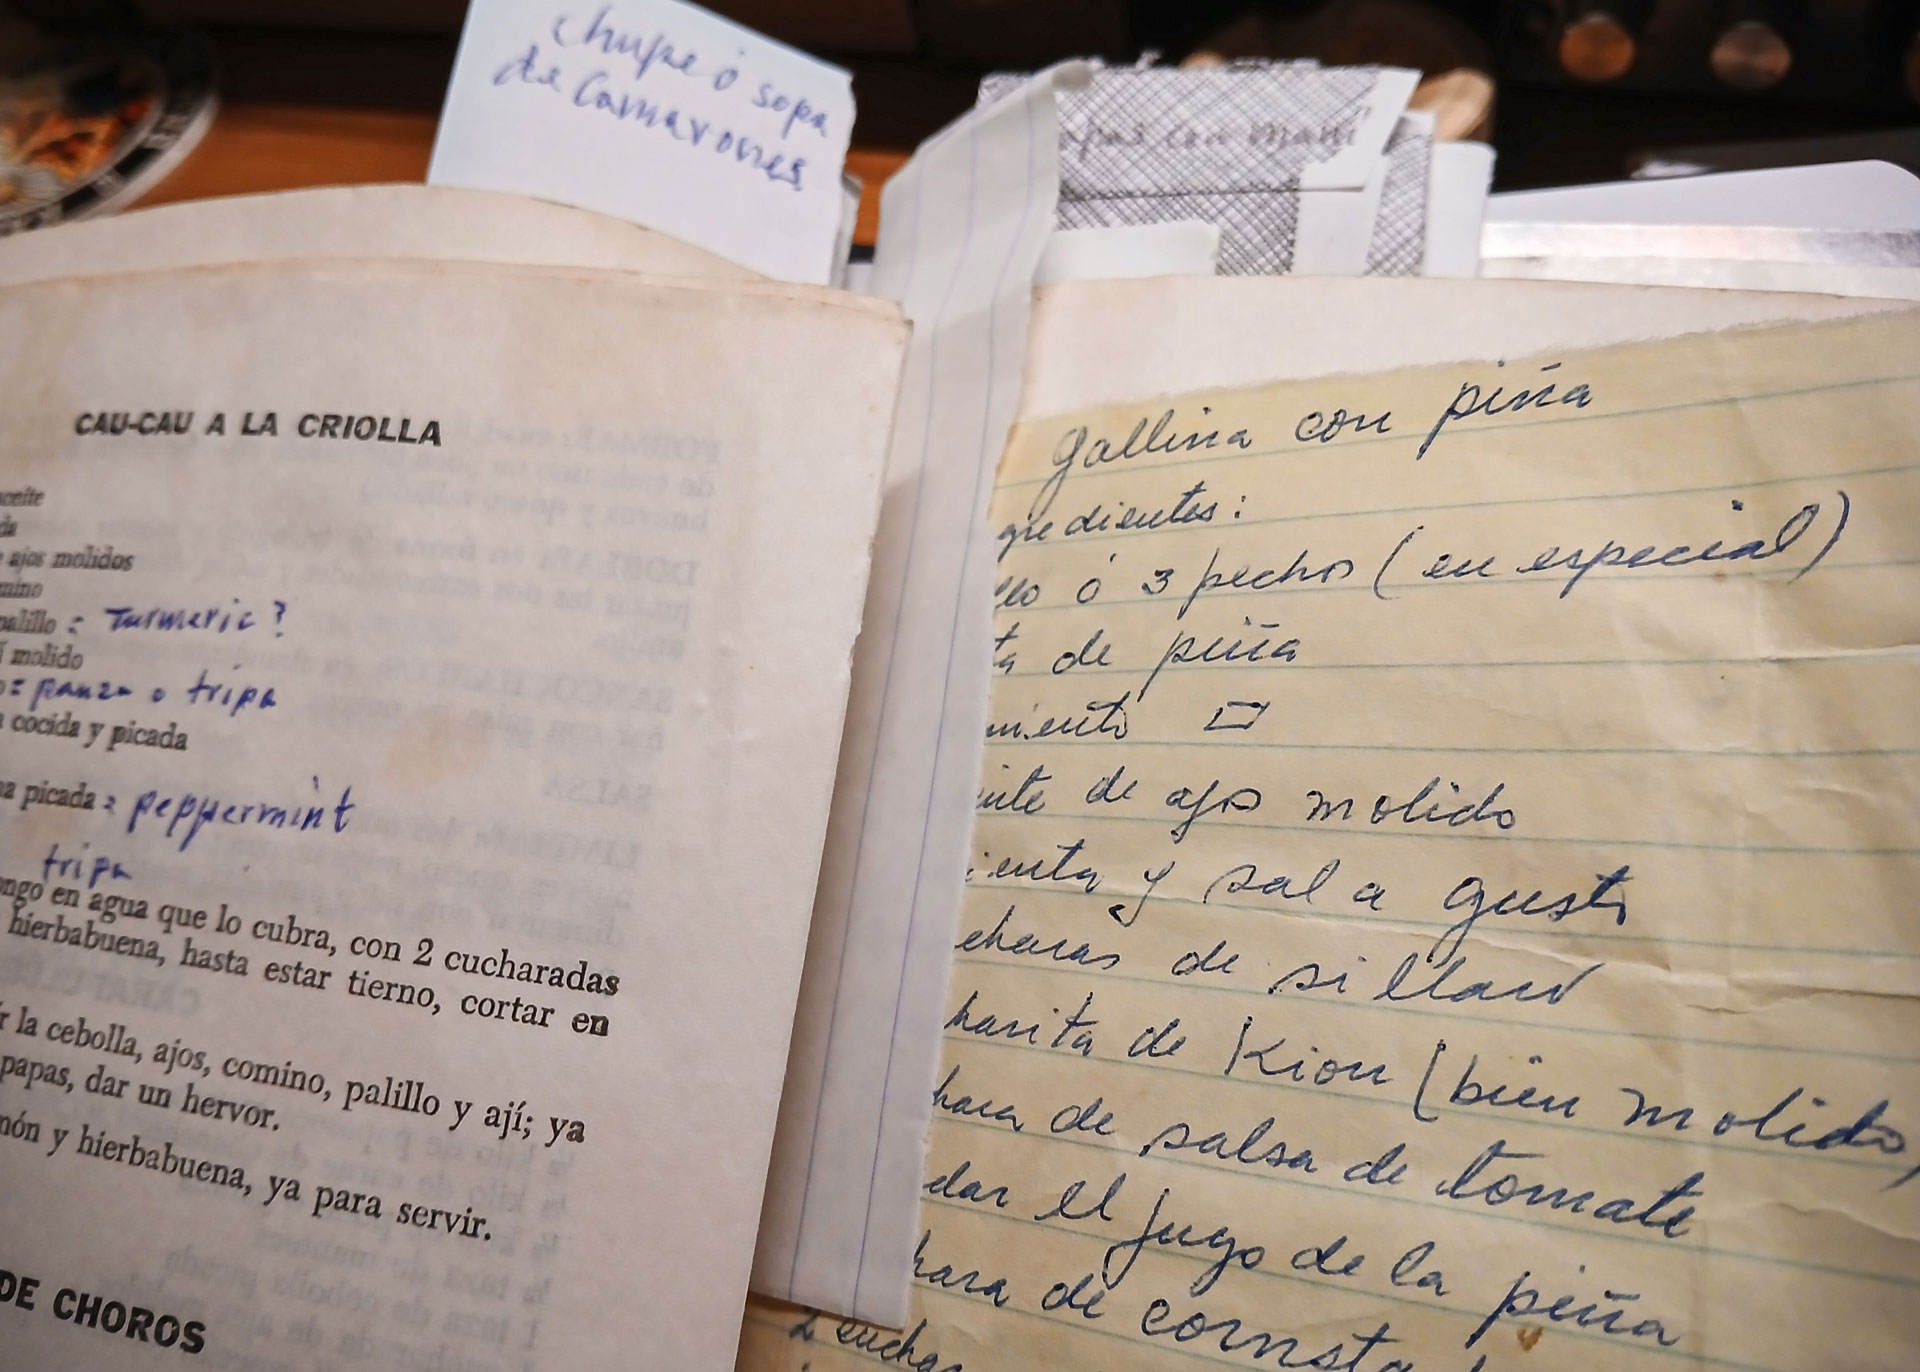 chupe ó sopa
de Camarones
con mani
CAU-CAU A LA CRIOLLA
aceite
ajos molidos
palillo = Turmeric?
molido
= panza o tripa
cocida y picada
picada = peppermint
tripa
en agua que lo cubra, con 2 cucharadas
hierbabuena, hasta estar tierno, cortar en
la cebolla, ajos, comino, palillo y ají; ya
papas, dar un hervor.
y hierbabuena, ya para servir.
DE CHOROS
Gallina con piña
gredientes:
ó 3 pechos (en especial)
de piña
miento
de ajos molido
ienta y sal a gusto
charas de sillau
harita de Kion (bien molido)
hara de salsa de tomate
dar el jugo de la piña
hara de cornsta
2 euchar